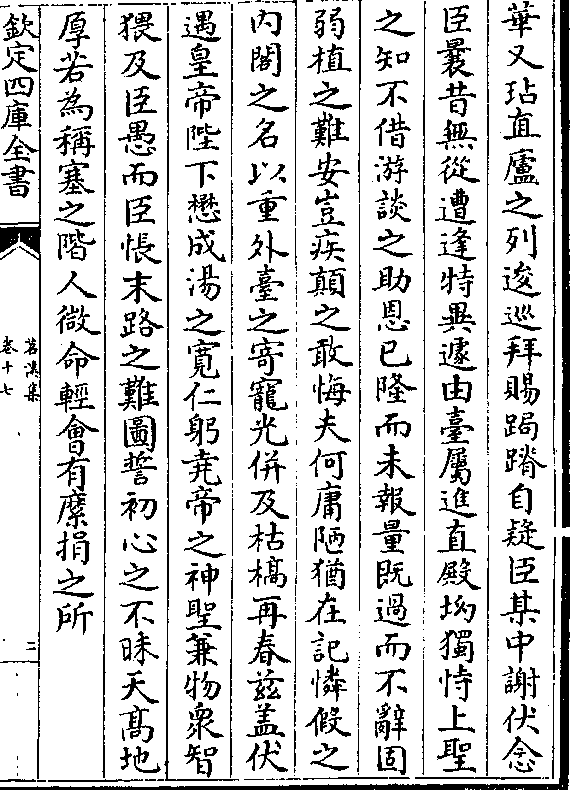 華又玷直廬之列逡巡拜賜跼蹐自疑臣某中謝伏念
臣曩昔無從遭逢特異遽由臺屬進直殿坳獨恃上聖
之知不借游談之助恩已隆而未報量既過而不辭固
弱植之難安豈疾顛之敢悔夫何庸陋猶在記憐假之
内閣之名以重外臺之寄寵光併及枯槁再春兹盖伏
遇皇帝陛下懋成湯之寛仁躬堯帝之神聖兼物衆智
猥及臣愚而臣悵末路之難圖誓初心之不昧天髙地
厚若為稱塞之階人微命輕會有糜捐之所
欽定四庫全書
苕溪集
卷十七
三